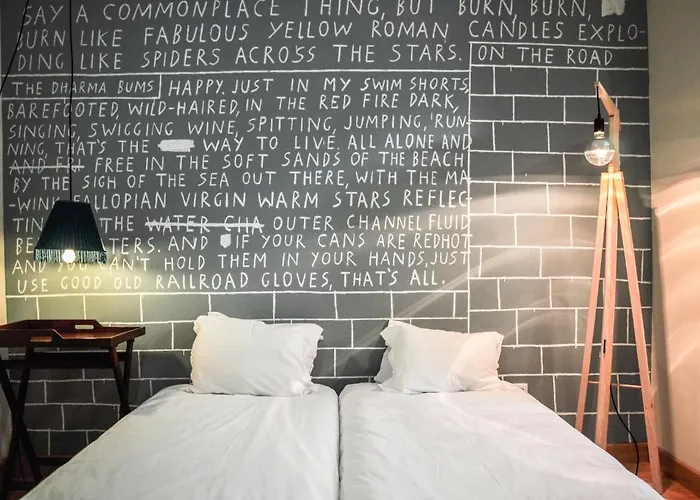 SAY A COMMONPLACE THING, BUT BURN, BURN,
BURN LIKE FABULOUS YELLOW ROMAN CANDLES EXPLO-
DING LIKE SPIDERS ACROSS THE STARS. ON THE ROAD
THE DHARMA BUMS HAPPY. JUST IN MY SWIM SHORTS,
BAREFOOTED, WILD-HAIRED, IN THE RED FIRE DARK,
SINGING, SWIGGING WINE, SPITTING, JUMPING, RUN-
NING, THAT'S THE WAY TO LIVE. ALL ALONE AND
AND FR FREE IN THE SOFT SANDS OF THE BEACH
BY THE SIGH OF THE SEA OUT THERE, WITH THE MA-
WINK FALLOPIAN VIRGIN WARM STARS REFLEC-
TIN THE WATER CHA OUTER CHANNEL FLUID
BE TERS. AND IF YOUR CANS ARE REDHOT
AND YOU CAN'T HOLD THEM IN YOUR HANDS, JUST
USE GOOD OLD RAILROAD GLOVES, THAT'S ALL.